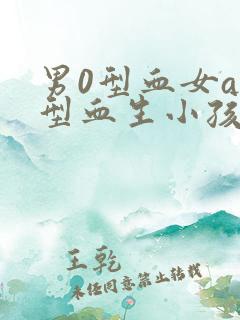 男0型血女a
型血生小孩
王乾
未经同意禁止转载